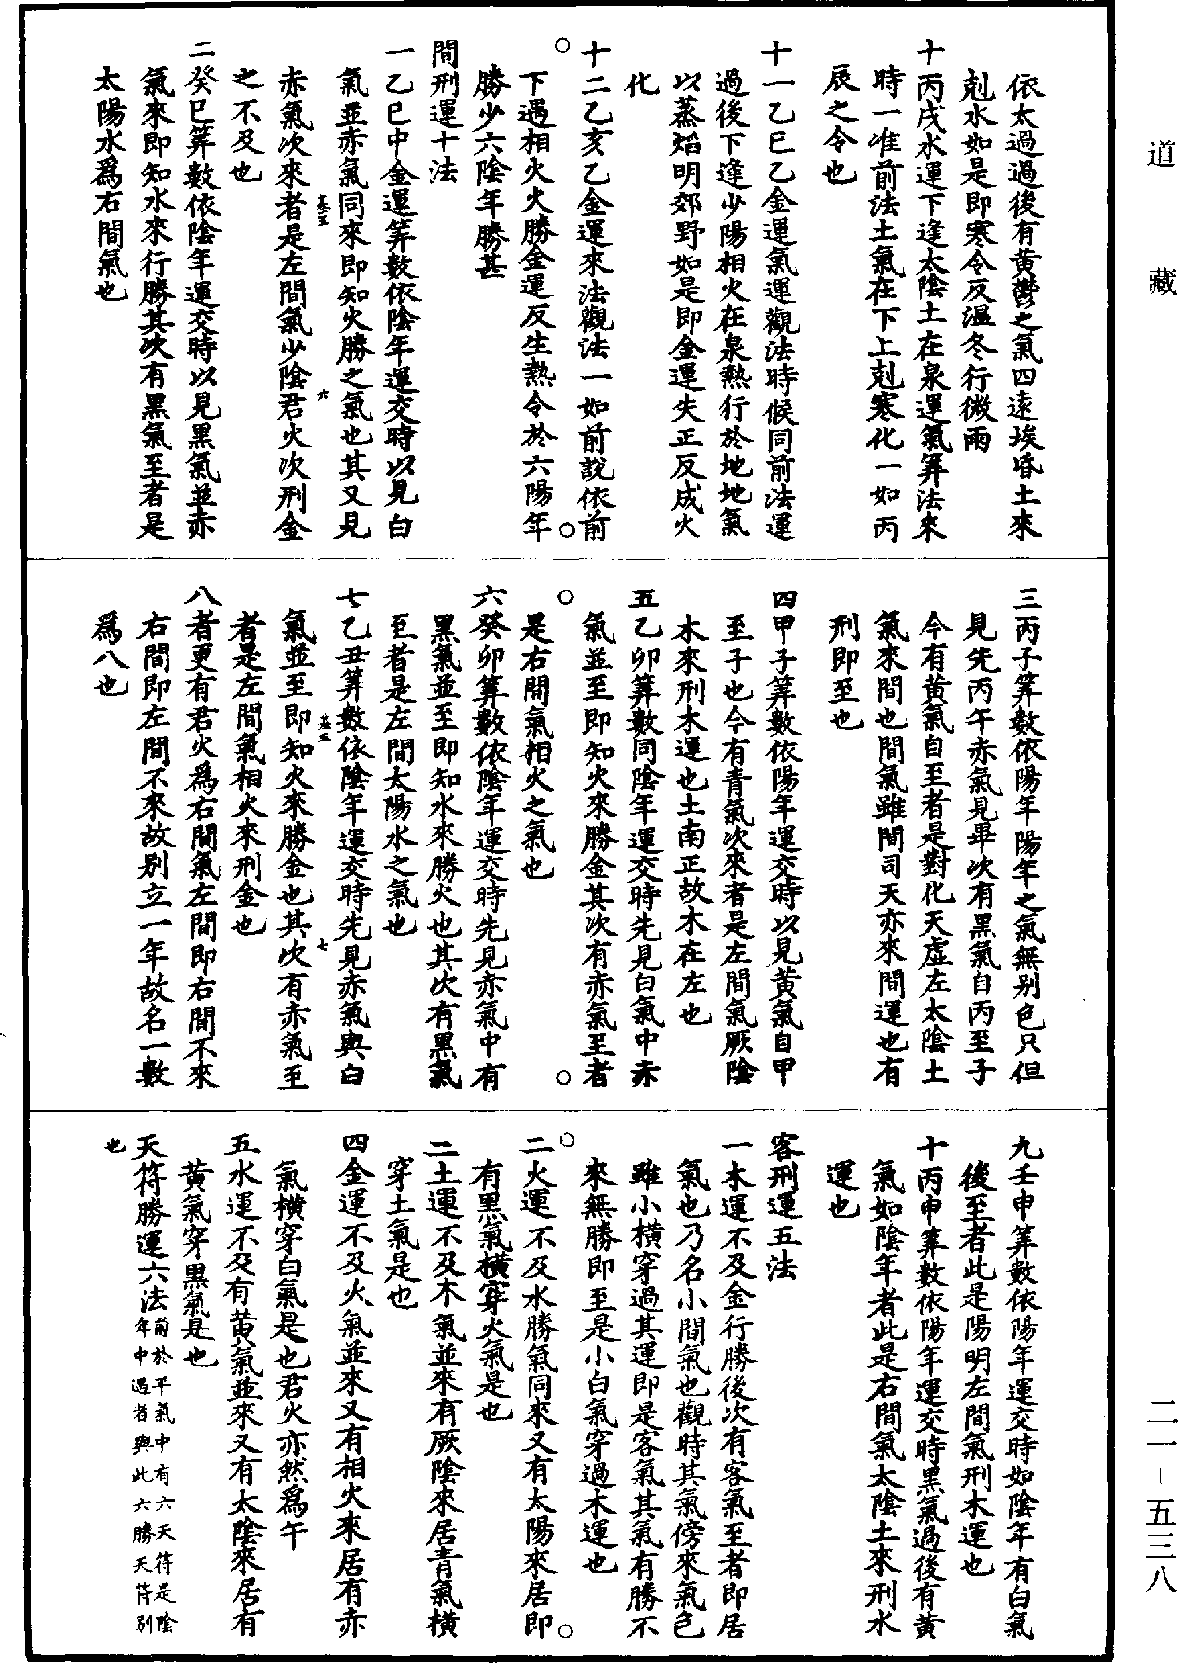 道藏
依太過過後有黃鬱之氣四遠埃昏土來
剋水如是即寒令反溫冬行微雨
十丙戌水運下逢太陰土在泉運氣筭法來
時一准前法土氣在下上剋寒化一如丙
辰之令也
十一乙巳乙金運氣運觀法時候同前法運
過後下逢少陽相火在泉熱行於地地氣
以蒸熖明郊野如是即金運失正反成火
化
十二乙亥乙金運來法觀法一如前說依前
下遇相火火勝金運反生熱令於六陽年
勝少六陰年勝甚
間刑運十法
一乙巳中金運筭數依陰年運交時以見白
氣並赤氣同來即知火勝之氣也其又見
赤氣次來者是左間氣少陰君火次刑金
之不及也
二癸巳筭數依陰年運交時以見黑氣並赤
氣來即知水來行勝其次有黑氣至者是
太陽水爲右間氣也
三丙子筭數依陽年陽年之氣無別色只但
見先丙午赤氣見畢次有黑氣自丙至子
今有黃氣自至者是對化天虛左太陰土
氣來間也間氣雖間司天亦來間運也有
刑即至也
四甲子筭數依陽年運交時以見黃氣自甲
至子也今有青氣次來者是左間氣厥陰
木來刑木運也土南正故木在左也
五乙卯筭數同陰年運交時先見白氣中赤
氣並至即知火來勝金其次有赤氣至者
是右間氣相火之氣也
六癸卯筭數依陰年運交時先見赤氣中有
黑氣並至即知水來勝火也其次有黑氣
至者是左間太陽水之氣也
七乙丑筭數依陰年運交時先見赤氣與白
氣並至即知火來勝金也其次有赤氣至
者是左間氣相火來刑金也
八者更有君火爲右間氣左間即右間不來
右間即左間不來故別立一年故名一數
爲八也
九壬申筭數依陽年運交時如陰年有白氣
後至者此是陽明左間氣刑木運也
十丙申筭數依陽年運交時黑氣過後有黃
氣如陰年者此是右間氣太陰土來刑水
運也
客刑運五法
一木運不及金行勝後次有客氣至者即居
氣也乃名小間氣也觀時其氣傍來氣色
雖小橫穿過其運即是客氣其氣有勝不
來無勝即至是小白氣穿過木運也
二火運不及水勝氣同來又有太陽來居即
有黑氣橫穿火氣是也
二土運不及木氣並來有厥陰來居青氣橫
穿土氣是也
四金運不及火氣並來又有相火來居有赤
氣橫穿白氣是也君火亦然爲午
五水運不及有黃氣並來又有太陰來居有
黃氣穿黑氣是也
天符勝運六法前於平氣中有六天符是陰年中遇者與此六勝天符別也
二一-五三八